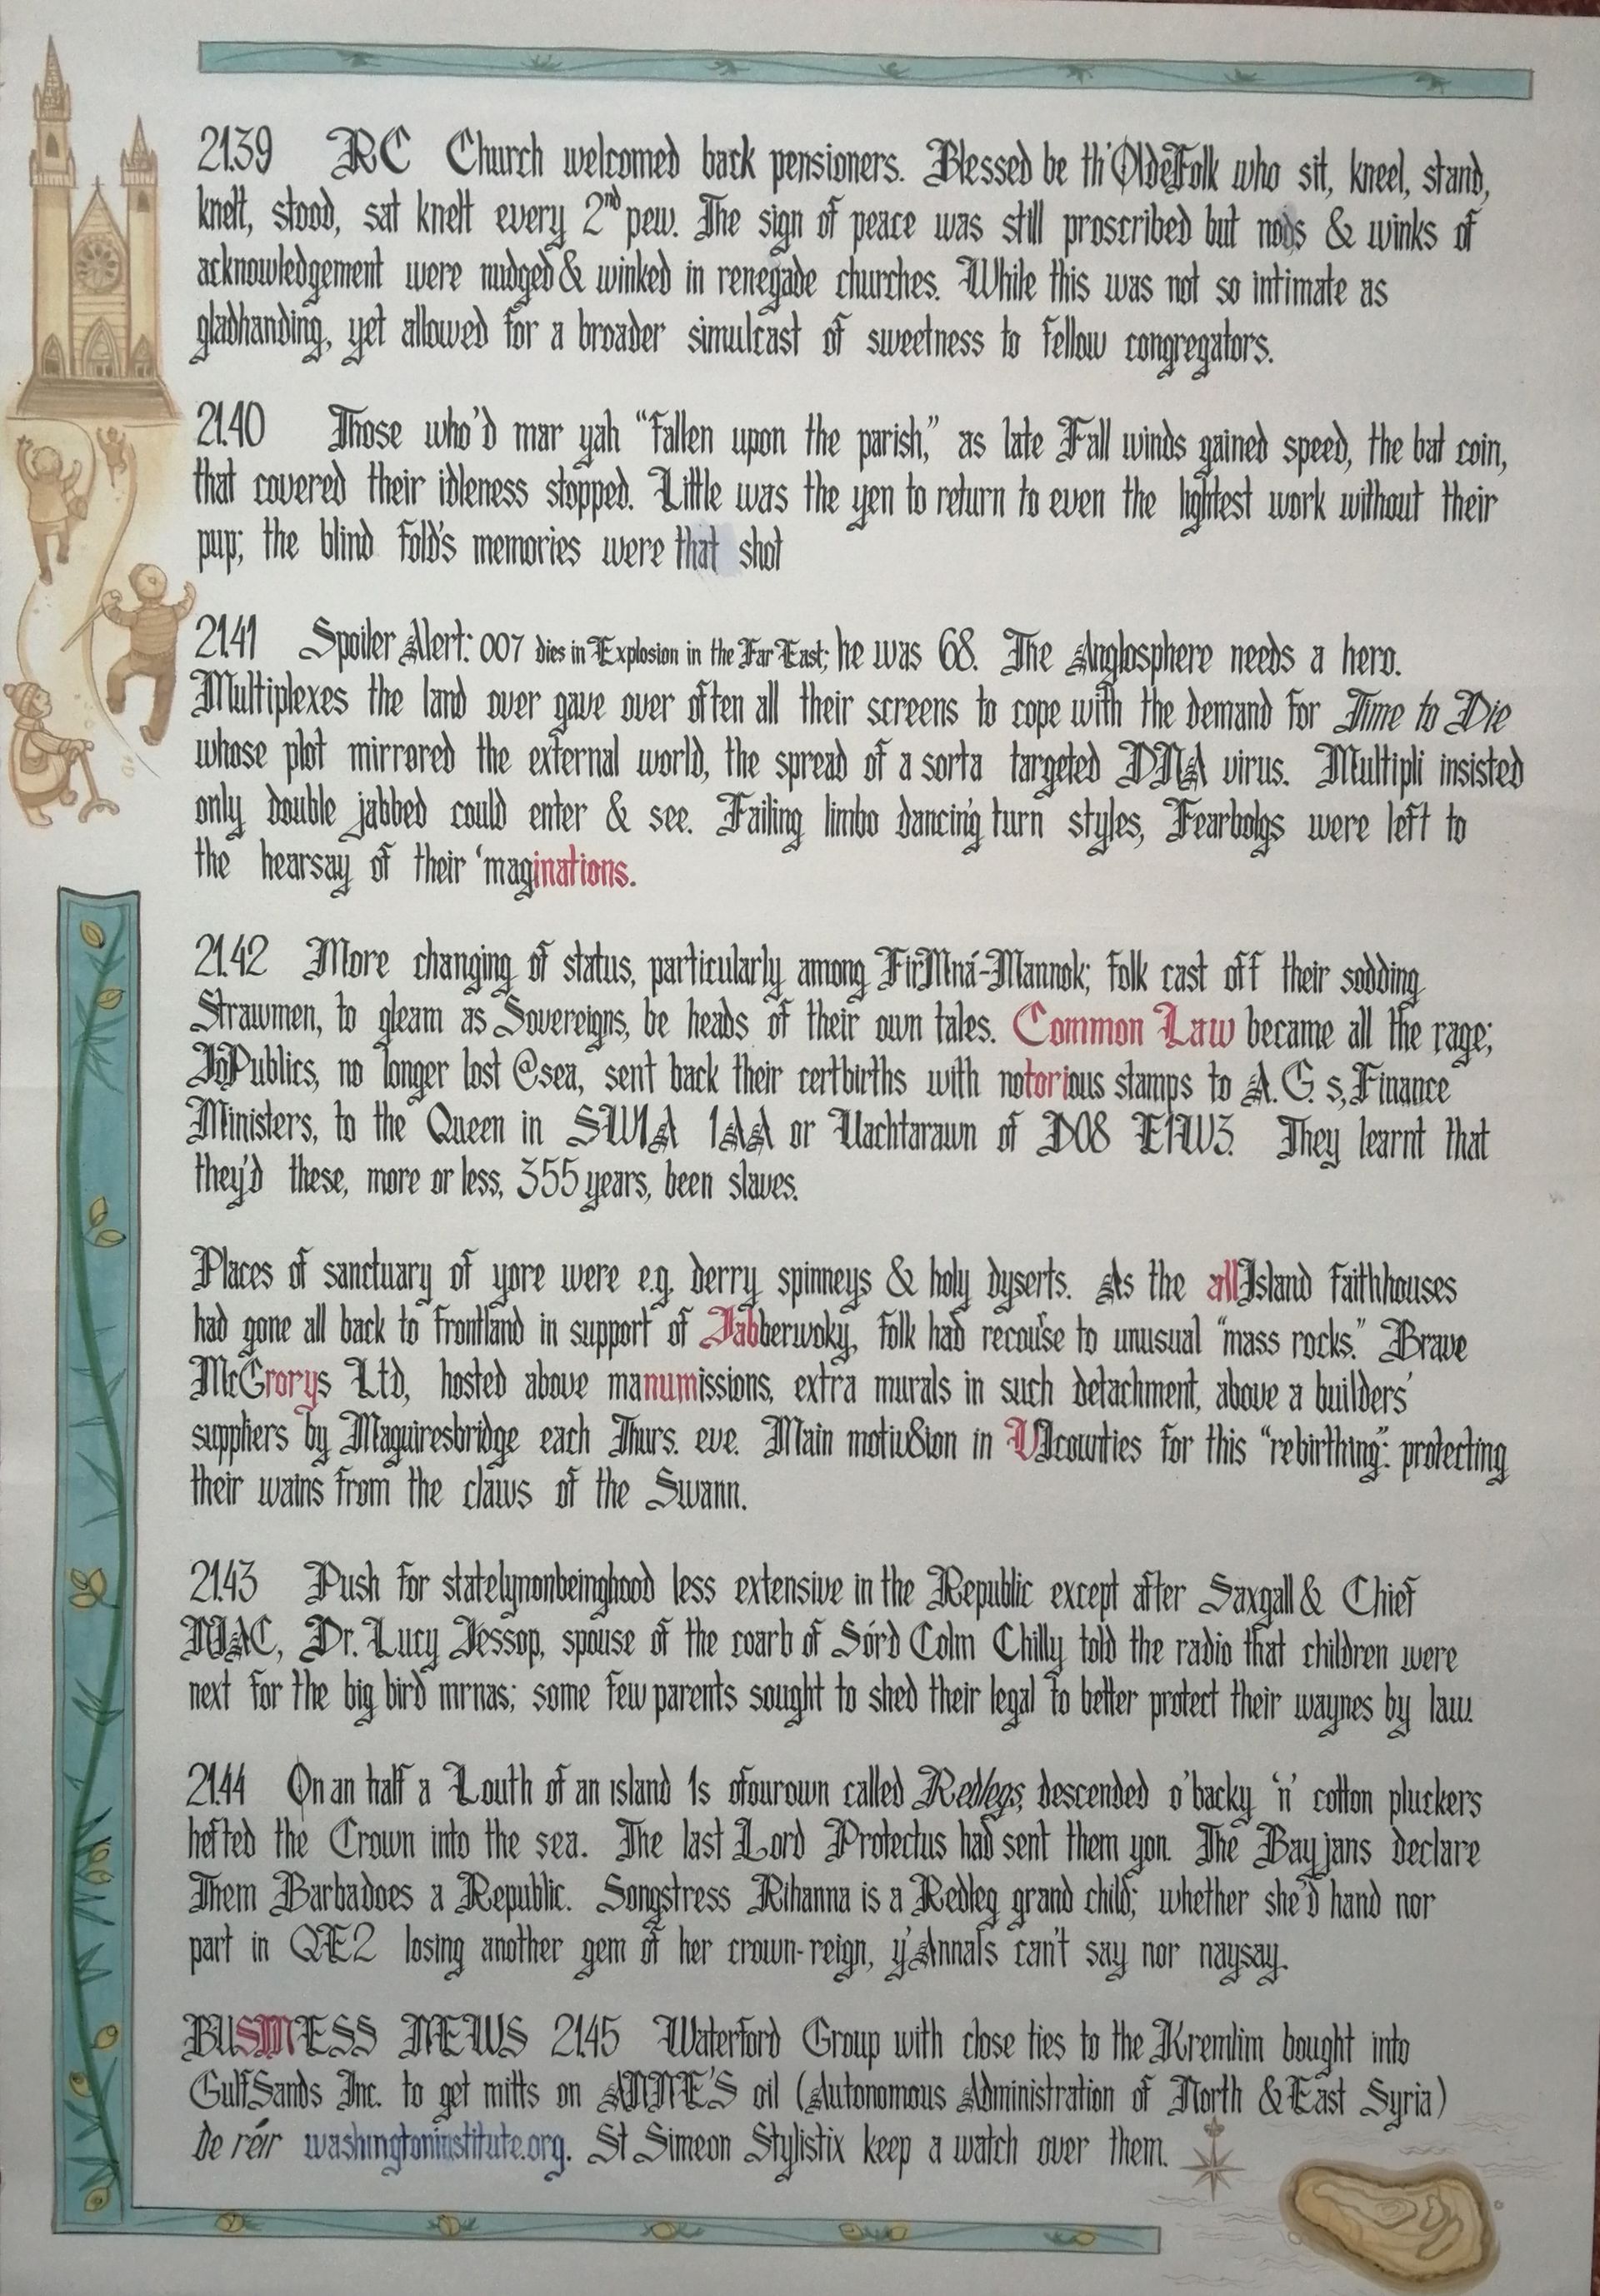 21.39 RC Church welcomed back pensioners. Blessed be th'OldeFolk who sit, kneel, stand,
knelt, stood, sat knelt every 2nd pew. The sign of peace was still proscribed but nods & winks of
acknowledgement were nudged & winked in renegade churches. While this was not so intimate as
gladhanding, yet allowed for a broader simulcast of sweetness to fellow congregators.
21.40 Those who'd mar yah "fallen upon the parish," as late Fall winds gained speed, the bat coin,
that covered their idleness stopped. Little was the yen to return to even the lightest work without their
pup; the blind fold's memories were that shot
21.41 Spoiler Alert: 007 dies in Explosion in the Far East; he was 68. The Anglosphere needs a hero.
Multiplexes the land over gave over often all their screens to cope with the demand for Time to Die
whose plot mirrored the external world, the spread of a sorta targeted DNA virus. Multipli insisted
only double jabbed could enter & see. Failing limbo dancing turn styles, Fearbolgs were left to
the hearsay of their 'maginations.
21.42 More changing of status, particularly among FirMná-Mannok; folk cast off their sodding
Strawmen, to gleam as Sovereigns, be heads of their own tales. Common Law became all the rage;
JoPublics, no longer lost @sea, sent back their certbirths with notorious stamps to A.G. s, Finance
Ministers, to the Queen in SW1A 1AA or Uachtarawn of D08 E1W3. They learnt that
they'd these, more or less, 355 years, been slaves.
Places of sanctuary of yore were e.g. derry spinneys & holy dyserts. As the allIsland faithhouses
had gone all back to frontland in support of Jabberwoky, folk had recou'se to unusual "mass rocks." Brave
McGrorys Ltd, hosted above manumissions, extra murals in such detachment, above a builders'
suppliers by Maguiresbridge each Thurs. eve. Main motiv8ion in VIcounties for this "rebirthing": protecting
their wains from the claws of the Swann.
21.43 Push for statelynonbeinghood less extensive in the Republic except after Saxgall & Chief
NIAC, Dr. Lucy Jessop, spouse of the coarb of Sórd Colm Chilly told the radio that children were
next for the big bird mrnas; some few parents sought to shed their legal to better protect their waynes by law.
21.44 On an half a Louth of an island 1s ofourown called Redlegs, descended o'backy 'n' cotton pluckers
hefted the Crown into the sea. The last Lord Protectus had sent them yon. The Bayjans declare
Them Barbadoes a Republic. Songstress Rihanna is a Redleg grand child; whether she'd hand nor
part in QE2 losing another gem of her crown-reign, y'Annals can't say nor naysay.
BUSINESS NEWS 21.45 Waterford Group with close ties to the Kremlim bought into
GulfSands Inc. to get mitts on ANNE'S oil (Autonomous Administration of North & East Syria)
de réir washingtoninstitute.org. St Simeon Stylistix keep a watch over them.